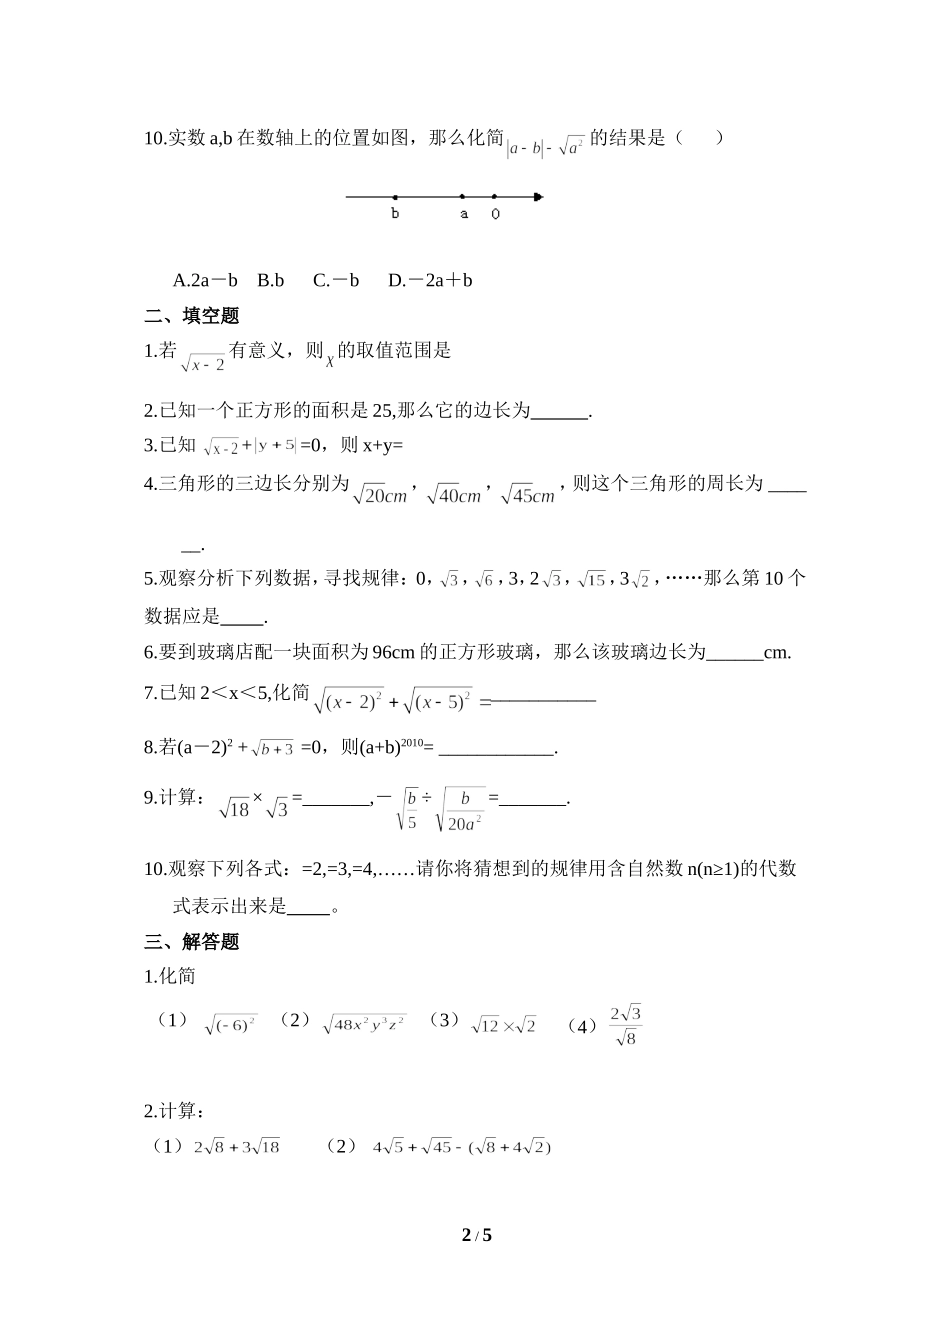 10.实数 a,b 在数轴上的位置如图，那么化简|a - b| - √a² 的结果是（ ）
b a 0
A.2a－b B.b C.－b D.－2a＋b
二、填空题
1.若√x - 2有意义，则x的取值范围是
2.已知一个正方形的面积是 25,那么它的边长为______.
3.已知 √x-2+|y + 5|=0，则 x+y=
4.三角形的三边长分别为√20cm，√40cm，√45cm，则这个三角形的周长为 ____
__.
5.观察分析下列数据，寻找规律：0，√3，√6，3，2√3，√15，3√2，……那么第 10 个
数据应是____.
6.要到玻璃店配一块面积为 96cm 的正方形玻璃，那么该玻璃边长为______cm.
7.已知 2＜x＜5,化简√(x - 2)² + √(x - 5)² =___________
8.若(a－2)² + √b + 3 =0，则(a+b)²⁰¹⁰= ____________.
9.计算：√18×√3=_______,－√(b/5)÷√(b/20a²)=_______.
10.观察下列各式：=2,=3,=4,……请你将猜想到的规律用含自然数 n(n≥1)的代数
式表示出来是____。
三、解答题
1.化简
（1） √(- 6)² （2）√48x²y³z² （3）√12 × √2 （4）2√3/√8
2.计算：
（1）2√8 + 3√18 （2） 4√5 + √45 - (√8 + 4√2)
2 / 5